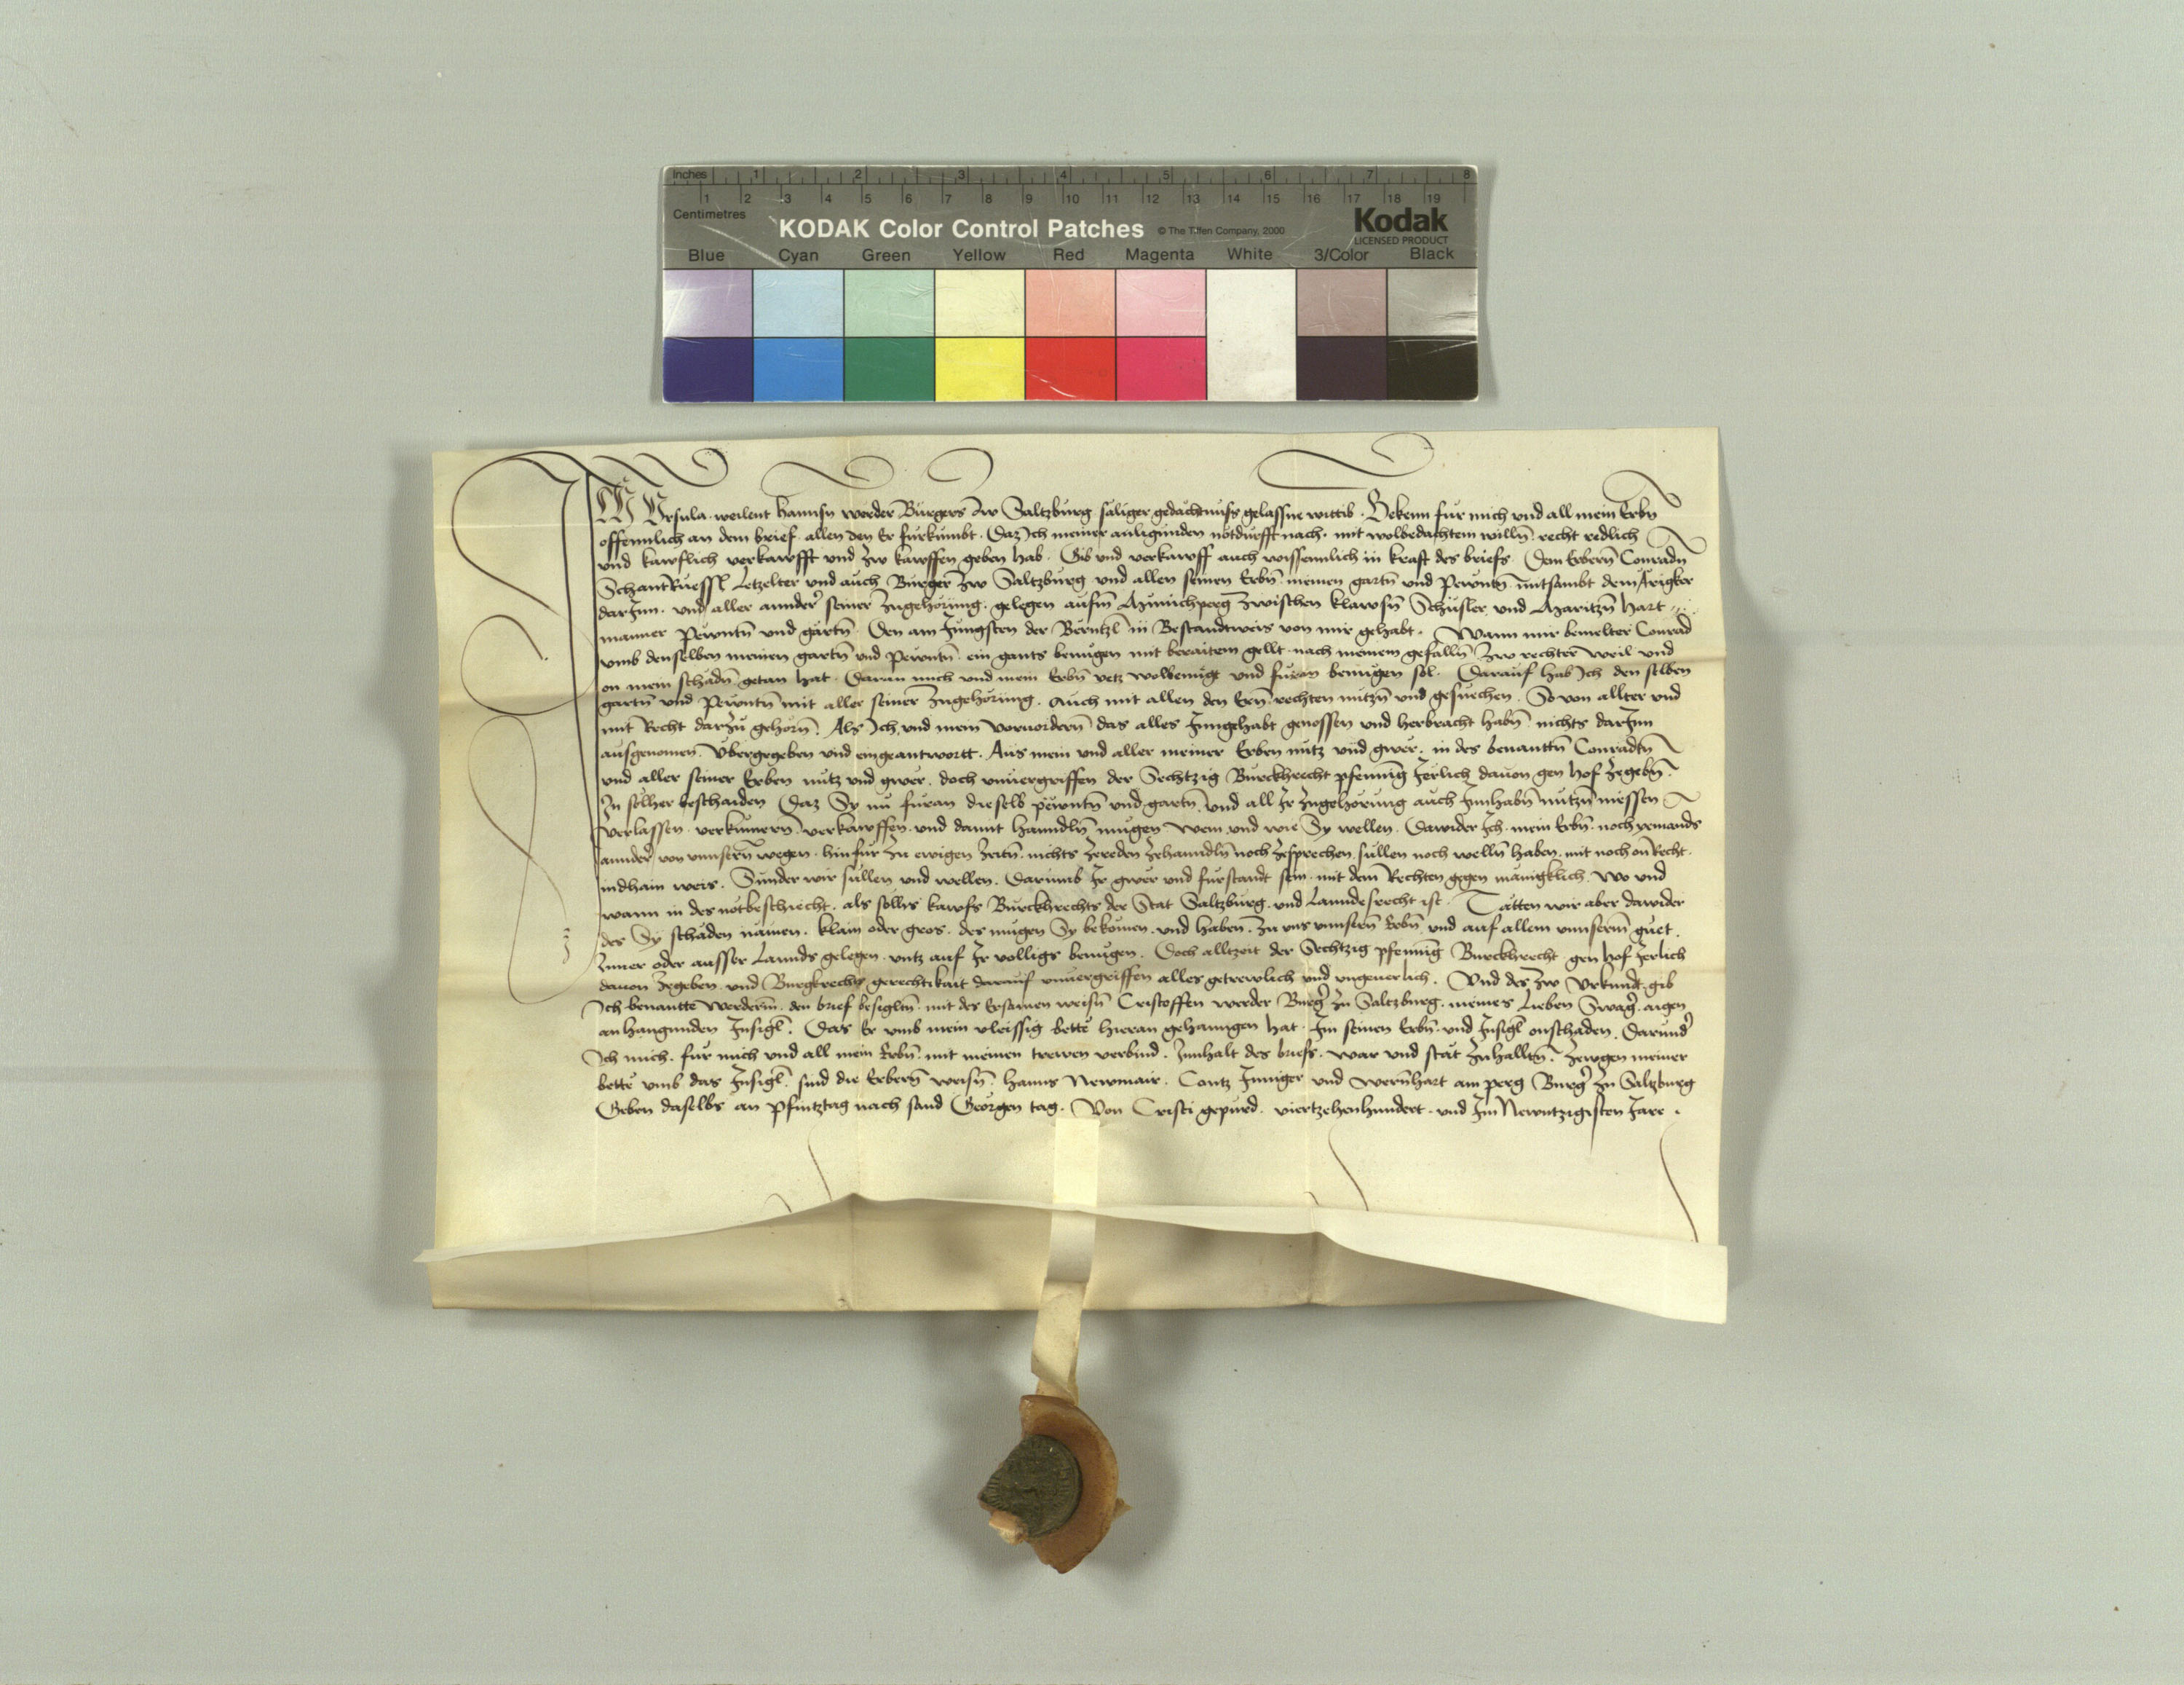 Inches 1 2 3 4 5 6 7 8
1 2 3 4 5 6 7 8 9 10 11 12 13 14 15 16 17 18 19
Centimetres
KODAK Color Control Patches © The Tiffen Company, 2000 Kodak
LICENSED PRODUCT
Blue Cyan Green Yellow Red Magenta White 3/Color Black
Ich Vrsula weilent Hannsn werder Burgers zw Saltzburg saliger gedachtnuss gelassne wittib. Bekenn fur mich und all mein Erbn
offennlich an dem brief allen den Er furkumbt. Daz Ich meiner anligunden notdurfft nach. mit wolbedachtem willn recht redlich
und kawflich verkawfft und zw kawffen geben hab. Gib und verkawff auch wissennlich in kraft des briefs. Dem Erbern Conradn
Schantkuessl Letzelter und auch Burger zw Saltzburg und allen seinen Erbn meinen gartn und Pewntn mitsambt dem
darInn. und aller annder seiner zugehorung. gelegen aufm Munichperg zwischen klawsn Schusler und Maritzn Hart
manner Pewntn und gartn. Den am Jungsten der Berntzl in Bestandtweis von mir gehabt. Wann mir bemelter Conrad
umb denselben meinen gartn und Pewntn ein gants benugen mit beraitem gellt nach meinem gefalln zw rechter weil und
on mein schadn getan hat. Daran mich und mein Erbn yetz wolbenugt und furan benugen sol. Darauf hab Ich den selben
gartn und Pewntn mit aller seiner zugehorung. auch mit allen den Ern rechten nutzn und gesuechen. So von allter und
mit Recht darzu gehorn. Als Ich und mein vorvordern das alles Inngehabt genossen und herbracht habn nichts darInn
ausgenomen Ubergegeben und eingeantwortt. Aus mein und aller meiner Erben nutz und gwer. in des benanttn Conradtn
und aller seiner Erben nutz und gwer. doch unvergriffen der Sechtzig Burckhrecht pfenning Jerlich davon gen hof zegebn.
In solher beschaiden Daz Sy nu furan dieselb pewntn und gartn. und all Ir zugehorung auch Innhabn nutzn niessen
verlassen. verkumern. verkawffen. und damit hanndln mugen wem und wie Sy wellen. Dawider Ich. mein Erbn. noch yemands
annder von unnsern wegen. hinfur zu ewigen zeitn. nichts zereden zehanndln noch zesprechen. sullen noch welln haben. mit noch on Recht.
indhain weis. Sunder wir sullen und wellen. Darumb Ir gwer und furstandt sein. mit dem Rechten gegen manigklich. wo und
wann in des notbeschiecht. als sollis kawfs Burckhrechts der Stat Saltzburg. und Lanndesrecht ist. Tatten wir aber dawider
des Sy schaden namen. klain oder gros. des mugen Sy bekomen. und haben. zu uns unnsern Erbn und auf allem unnserm guet.
Inner oder ausser Lannds gelegen. untz auf Ir volligs benugen. Doch alltzeit der Sechtzig pfenning Burckhrecht gen hof Jerlich
davon zegeben. und Burgkrechts gerechtikait darauf unvergriffen alles getrewlich und ungeverlich. Und des zw Urkundt. gib
Ich benantte Werderin. den brief besigltn. mit des Ersamen weisn Cristoffen werder Burger zu Saltzburg. meines Lieben Swager. aigen
anhangunden Insigl. Das Er umb mein vleissig bette hieran gehanngen hat. Im seinen Erbn. und Insigl onschaden. Darunder
Ich mich. fur mich und all mein Erbn. mit meinen trewen verbind. Innhalt des briefs. war und stat zuhalltn. zewgen meiner
bette umb das Insigl. sind die Erbern weisn. Hanns Newmair. Contz Inniger und wernhart am perg Burger zu Saltzburg
Geben daselbs an Pfintztag nach sand Georgen tag. Von Cristi gepurd. viertzehenhundert. und Im Newntzigisten Jare.